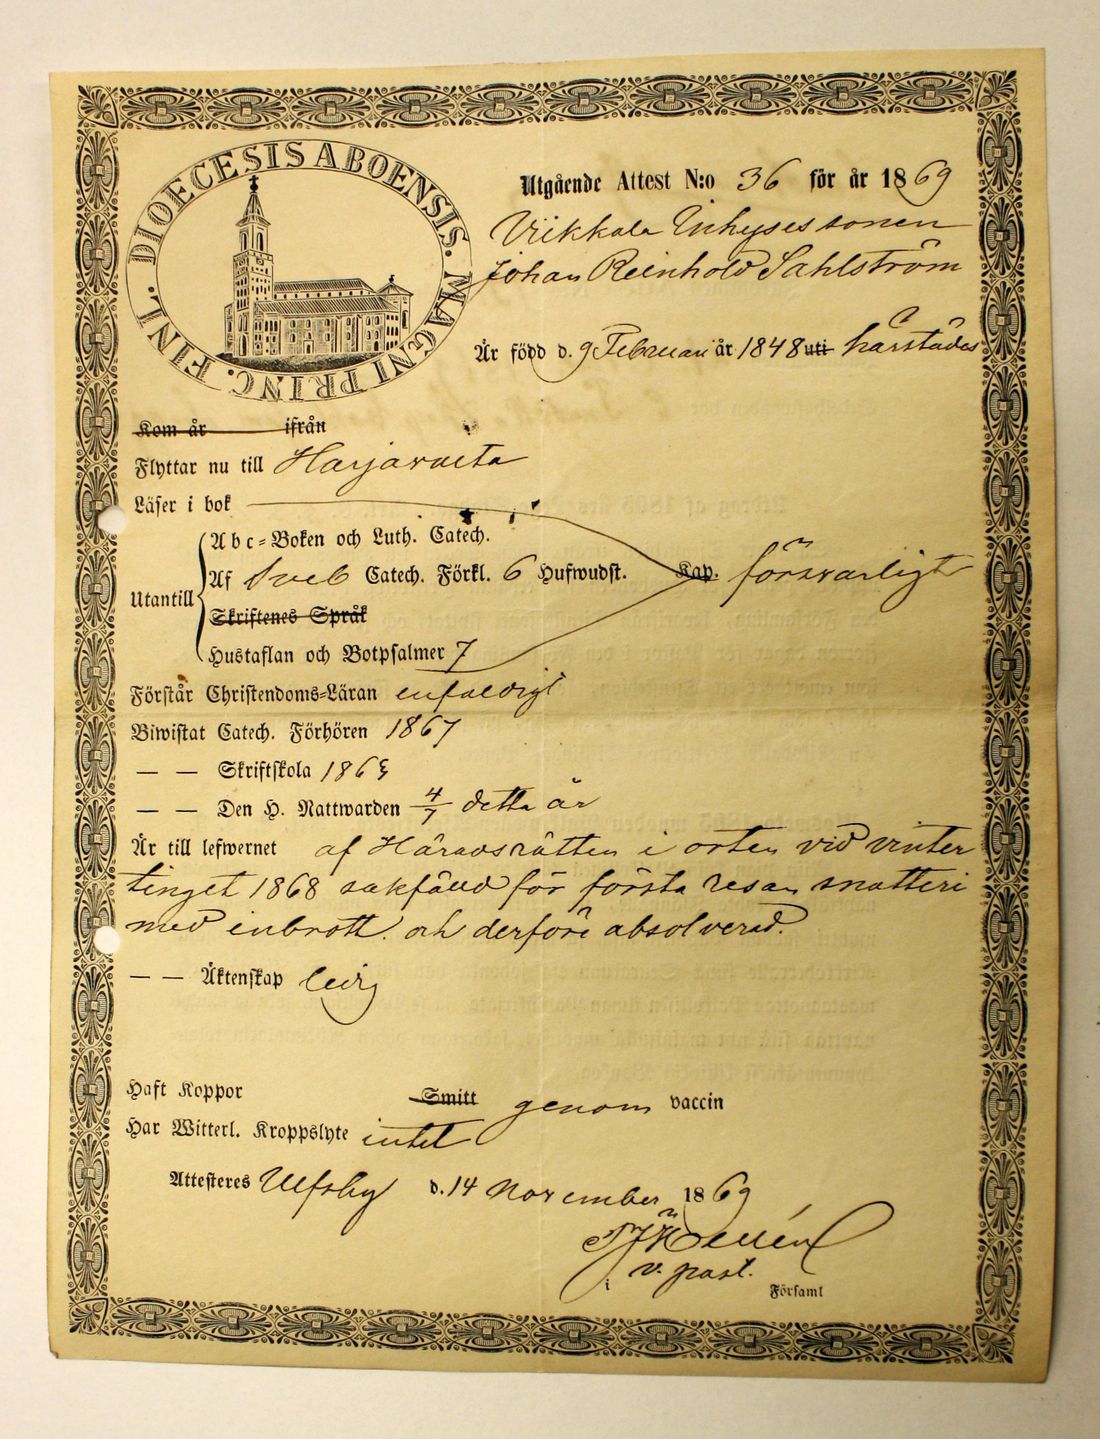 DIOECESIS ABOENSIS. MAGNI PRINC. FINL.
Utgående Attest N:o 36 för år 1869
Viikkala Inhysessonen
Johan Reinhold Sahlström
Är född d. 9 Februari år 1848 uti härstädes
Kom år ifrån
Flyttar nu till Harjavalta
Läser i bok
Abc-Boken och Luth. Catech.
Af Sveb Catech. Förkl. 6 Hufwudst. Kap. försvarligt
Utantill
Skriftenes Språk
Hustaflan och Botpsalmer 7
Förstår Christendoms-Läran enfaldigt
Biwistat Catech. Förhören 1867
— — Skriftskola 186
— — Den H. Nattwarden 4/7 detta år
Är till lefwernet af Häradsrätten i orten vid vinter
tinget 1868 sakfälld för första resan snatteri
med inbrott. och derföre absolverad.
— — Äktenskap ledig
Haft Koppor Smitt genom vaccin
Har Witterl. Kroppslyte intet
Attesteres Ulfsby d. 14 November 1869
Hellén
v. past.
i Församl